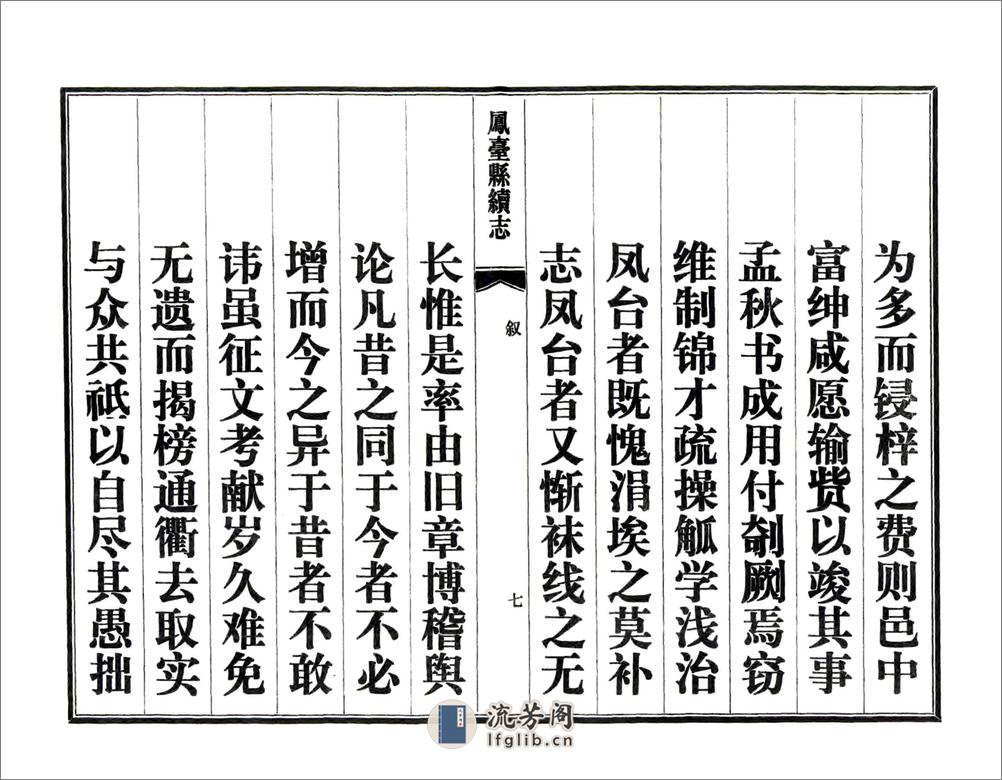 为多而锓梓之费则邑中
富绅咸愿输赀以竣其事
孟秋书成用付剞劂焉窃
维制锦才疏操觚学浅治
凤台者既愧涓埃之莫补
志凤台者又惭袜线之无
鳳臺縣續志
叙
七
长惟是率由旧章博稽舆
论凡昔之同于今者不必
增而今之异于昔者不敢
讳虽征文考献岁久难免
无遗而揭榜通衢去取实
与众共祇以自尽其愚拙
流芳阁
lfglib.cn